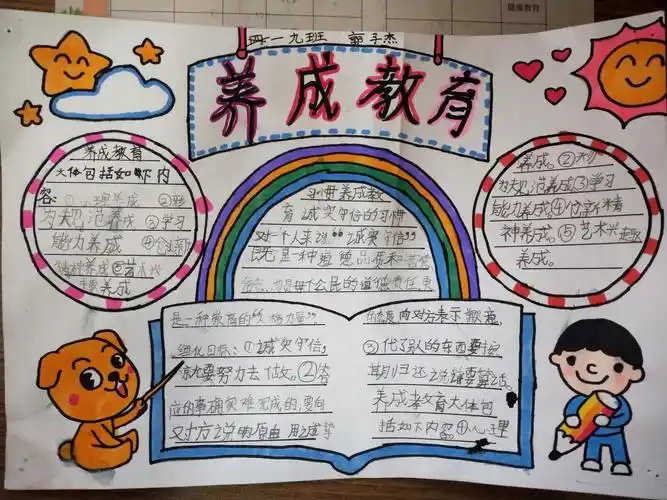 四一九班 郭子杰
养成教育
养成教育
大体包括如下内
容: ①心理养成 ②行
为规范养成 ③学习
能力养成 ④创新
精神养成 ⑤艺术兴
趣养成
习惯养成教
育 诚实守信的习惯
对一个人来说"诚实守信"
既是一种道德品质和
也是每个公民的道德责任更
养成。②行
为规范养成③学习
能力养成④创新精
神养成。⑤艺术兴趣
养成。
是一种崇高的"人格力量"。
细化目标: ①诚实守信,
就要努力去做。②答
应的事确实难完成的,要向
对方说明原由 用诚挚
的态度向对方表示歉意。
③代了别人的东西要按
期归还 说话要算话。
养成教育大体包
括如下内容。①心理